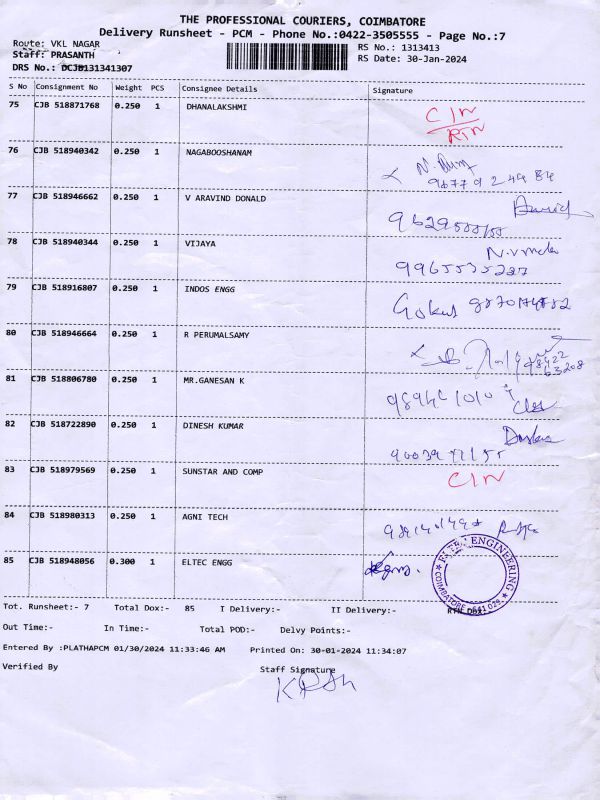 THE PROFESSIONAL COURIERS, COIMBATORE
Delivery Runsheet - PCM - Phone No.:0422-3505555 - Page No.:7
Route: VKL NAGAR RS No.: 1313413
Staff: PRASANTH RS Date: 30-Jan-2024
DRS No.: DCJB131341307
S No Consignment No Weight PCS Consignee Details Signature
75 CJB 518871768 0.250 1 DHANALAKSHMI CIN
RTN
76 CJB 518940342 0.250 1 NAGABOOSHANAM
77 CJB 518946662 0.250 1 V ARAVIND DONALD
78 CJB 518940344 0.250 1 VIJAYA
9965535227
79 CJB 518916807 0.250 1 INDOS ENGG Gokul
80 CJB 518946664 0.250 1 R PERUMALSAMY
81 CJB 518806780 0.250 1 MR.GANESAN K
82 CJB 518722890 0.250 1 DINESH KUMAR
83 CJB 518979569 0.250 1 SUNSTAR AND COMP CIN
84 CJB 518980313 0.250 1 AGNI TECH
85 CJB 518948056 0.300 1 ELTEC ENGG
ENGINEERING
COIMBATORE - 641 029.
Tot. Runsheet:- 7 Total Dox:- 85 I Delivery:- II Delivery:- RTN DOX:
Out Time:- In Time:- Total POD:- Delvy Points:-
Entered By :PLATHAPCM 01/30/2024 11:33:46 AM Printed On: 30-01-2024 11:34:07
Verified By Staff Signature